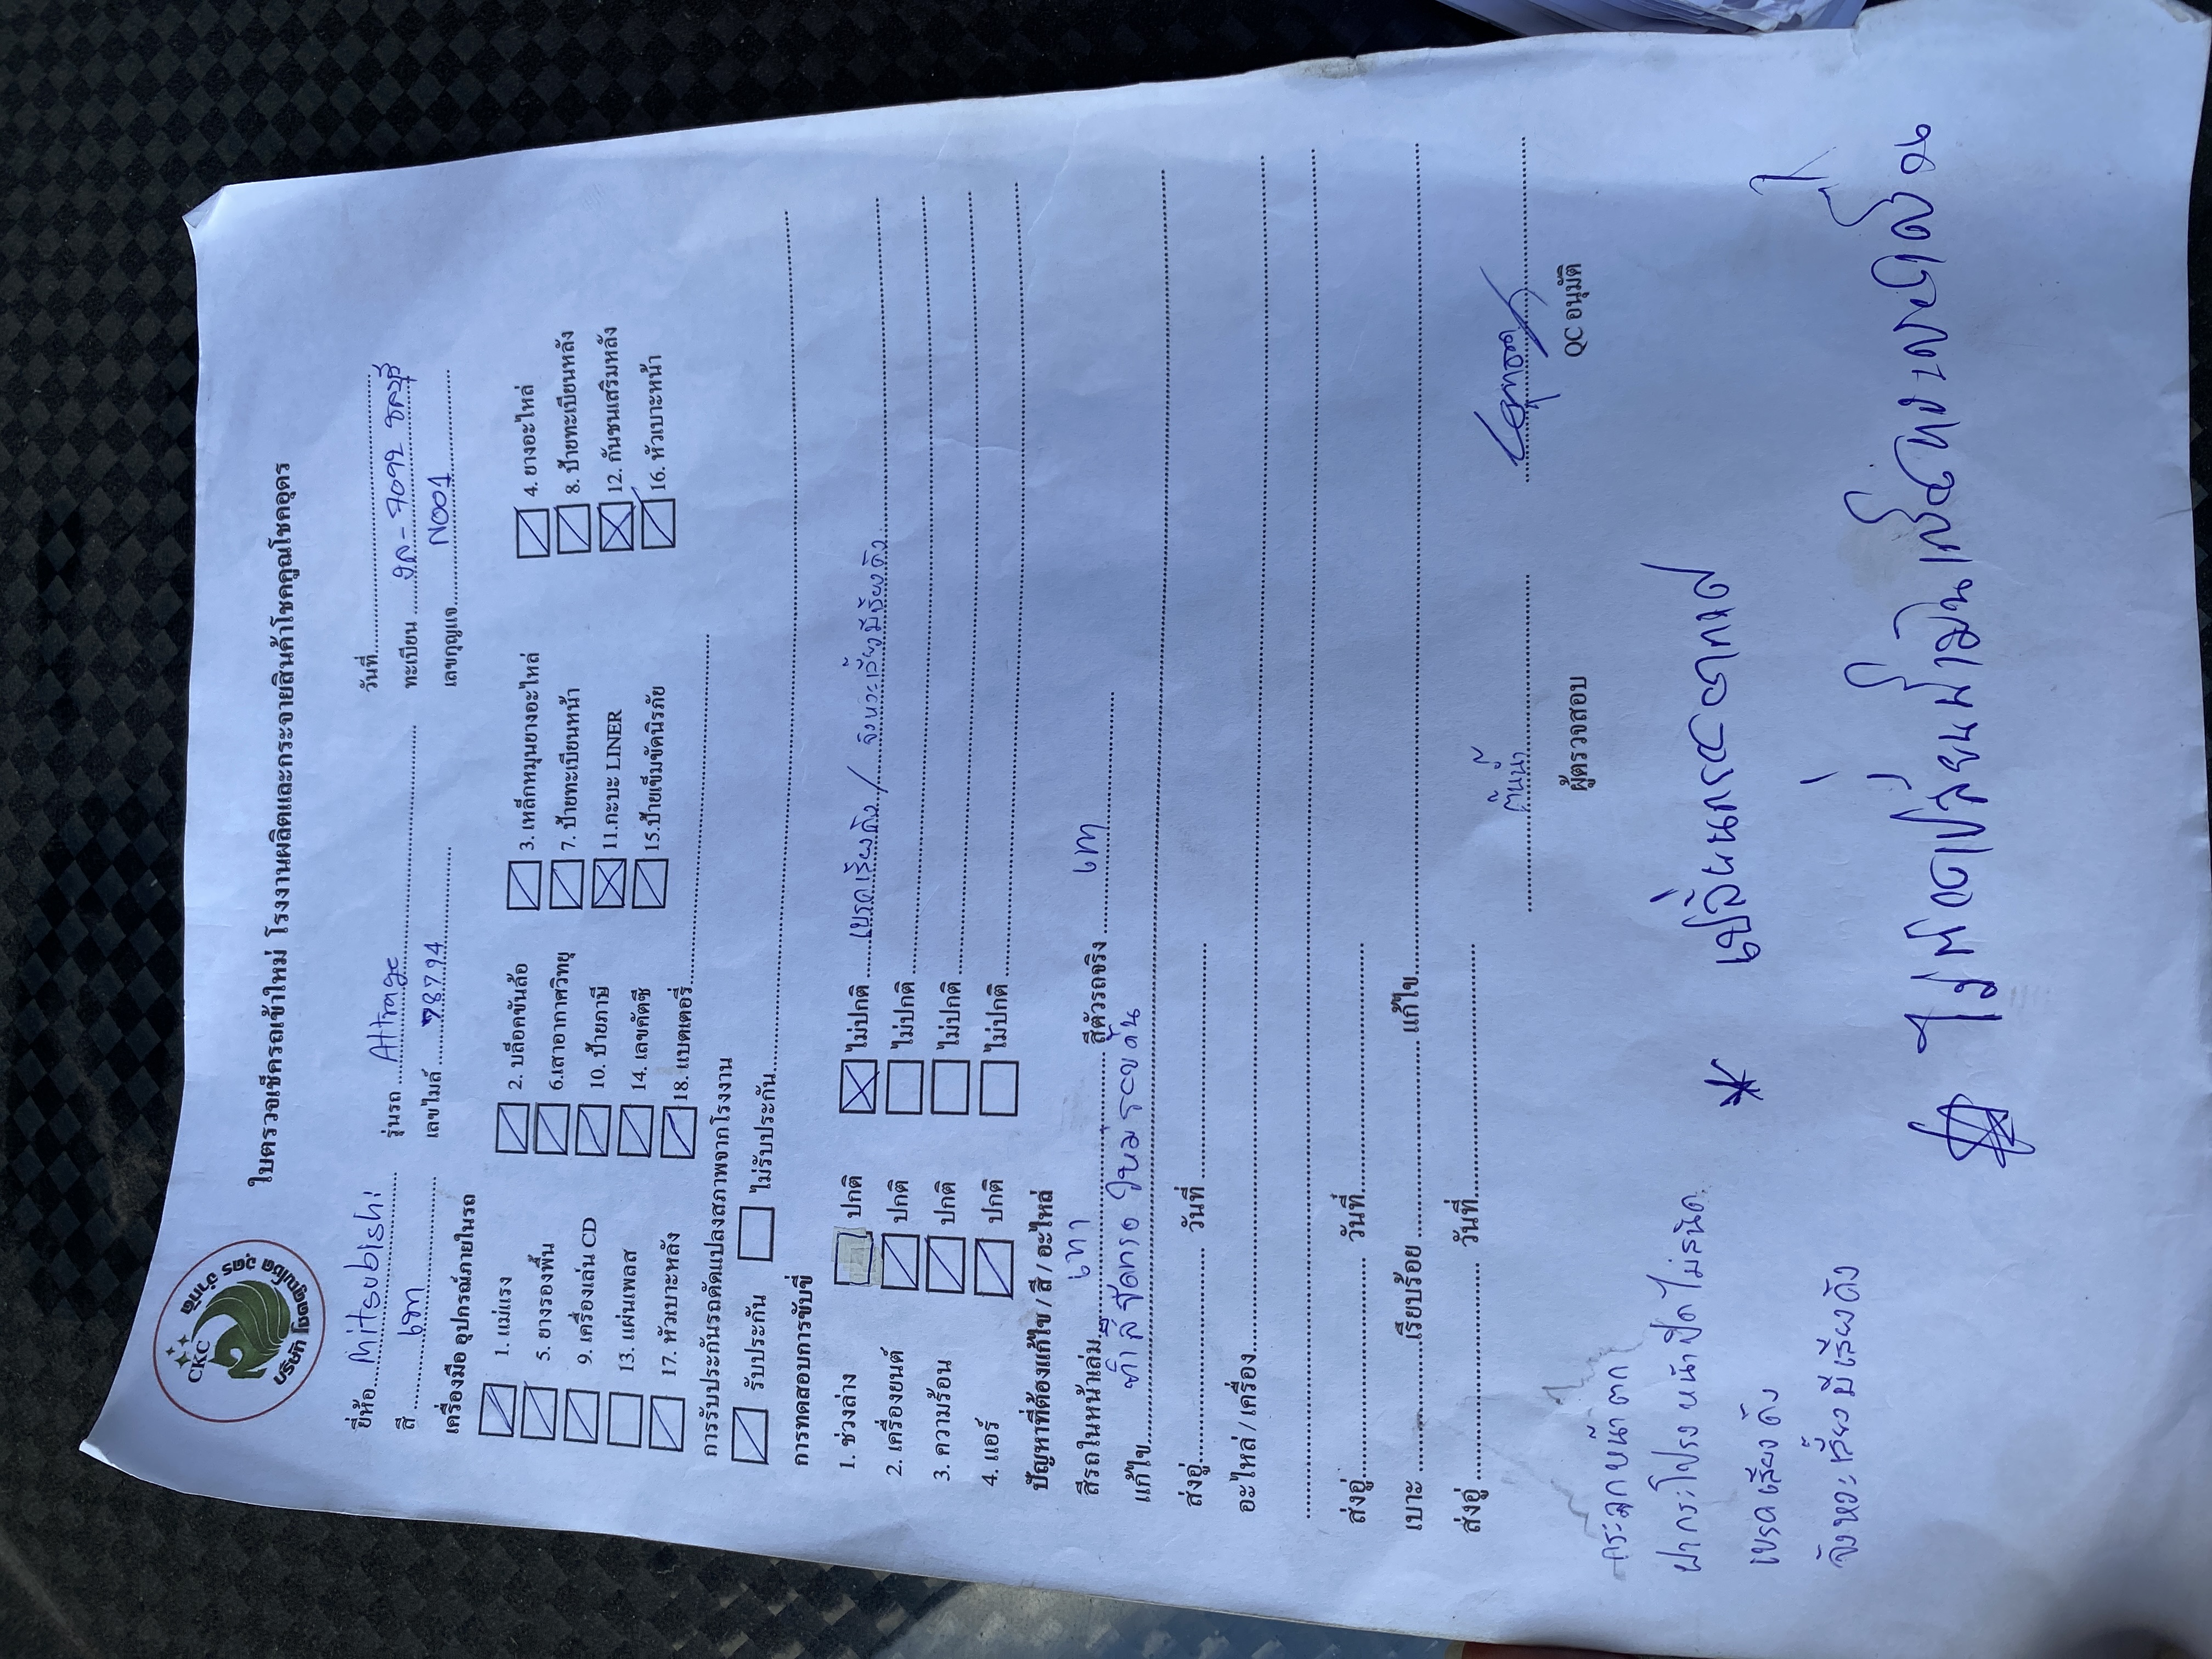 CKC
บริษัท โชคคูณโชค อุดร จำกัด
ใบตรวจเช็ครถเข้าใหม่ โรงงานผลิตและกระจายสินค้าโชคคูณโชคอุดร
วันที่
ยี่ห้อ Mitsubishi รุ่นรถ Attrage ทะเบียน 7092 ชลบุรี
สี เทา เลขไมล์ 78794 เลขกุญแจ N001
เครื่องมือ อุปกรณ์ภายในรถ
1. แม่แรง 2. บล็อคขันล้อ 3. เหล็กหมุนยางอะไหล่ 4. ยางอะไหล่
5. ยางรองพื้น 6.เสาอากาศวิทยุ 7. ป้ายทะเบียนหน้า 8. ป้ายทะเบียนหลัง
9. เครื่องเล่น CD 10. ป้ายภาษี 11.กะบะ LINER 12. กันชนเสริมหลัง
13. แผ่นเพลส 14. เลขคัตซี 15.ป้ายเข็มขัดนิรภัย 16. หัวเบาะหน้า
17. หัวเบาะหลัง 18. แบตเตอรี่
การรับประกันรถดัดแปลงสภาพจากโรงงาน
รับประกัน ไม่รับประกัน
การทดสอบการขับขี่
1. ช่วงล่าง ปกติ ไม่ปกติ เบรคเสียงดัง / จังหวะเลี้ยวมีเสียงดัง
2. เครื่องยนต์ ปกติ ไม่ปกติ
3. ความร้อน ปกติ ไม่ปกติ
4. แอร์ ปกติ ไม่ปกติ
ปัญหาที่ต้องแก้ไข / สี / อะไหล่
สีรถในหน้าเล่ม เทา สีตัวรถจริง เทา
แก้ไข ทำสี
ส่งอู่ วันที่
อะไหล่ / เครื่อง
ส่งอู่ วันที่
เบาะ เรียบร้อย แก้ไข
ส่งอู่ วันที่
ต้นน้ำ
ผู้ตรวจสอบ QC อนุมัติ
กระจกหน้าแตก
ฝากระโปรงหน้าปิดไม่สนิท
เบรคเสียงดัง
จังหวะเลี้ยวมีเสียงดัง
* เปลี่ยนกระจก